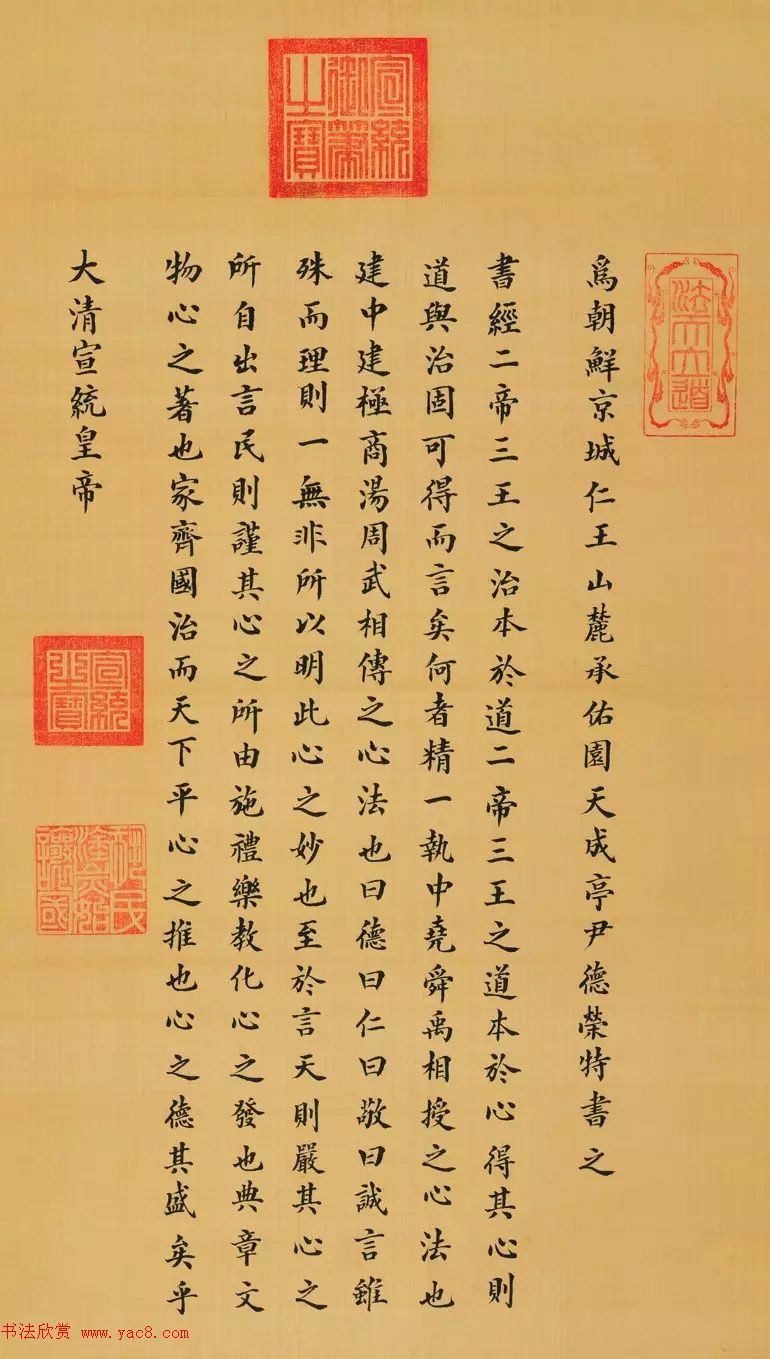 宣統御筆之寶
法天立道
爲朝鮮京城仁王山麓承佑園天成亭尹德榮特書之
書經二帝三王之治本於道二帝三王之道本於心得其心則
道與治固可得而言矣何者精一執中堯舜禹相授之心法也
建中建極商湯周武相傳之心法也曰德曰仁曰敬曰誠言雖
殊而理則一無非所以明此心之妙也至於言天則嚴其心之
所自出言民則謹其心之所由施禮樂教化心之發也典章文
物心之著也家齊國治而天下平心之推也心之德其盛矣乎
大清宣統皇帝
宣統之寶
书法欣赏 www.yac8.com